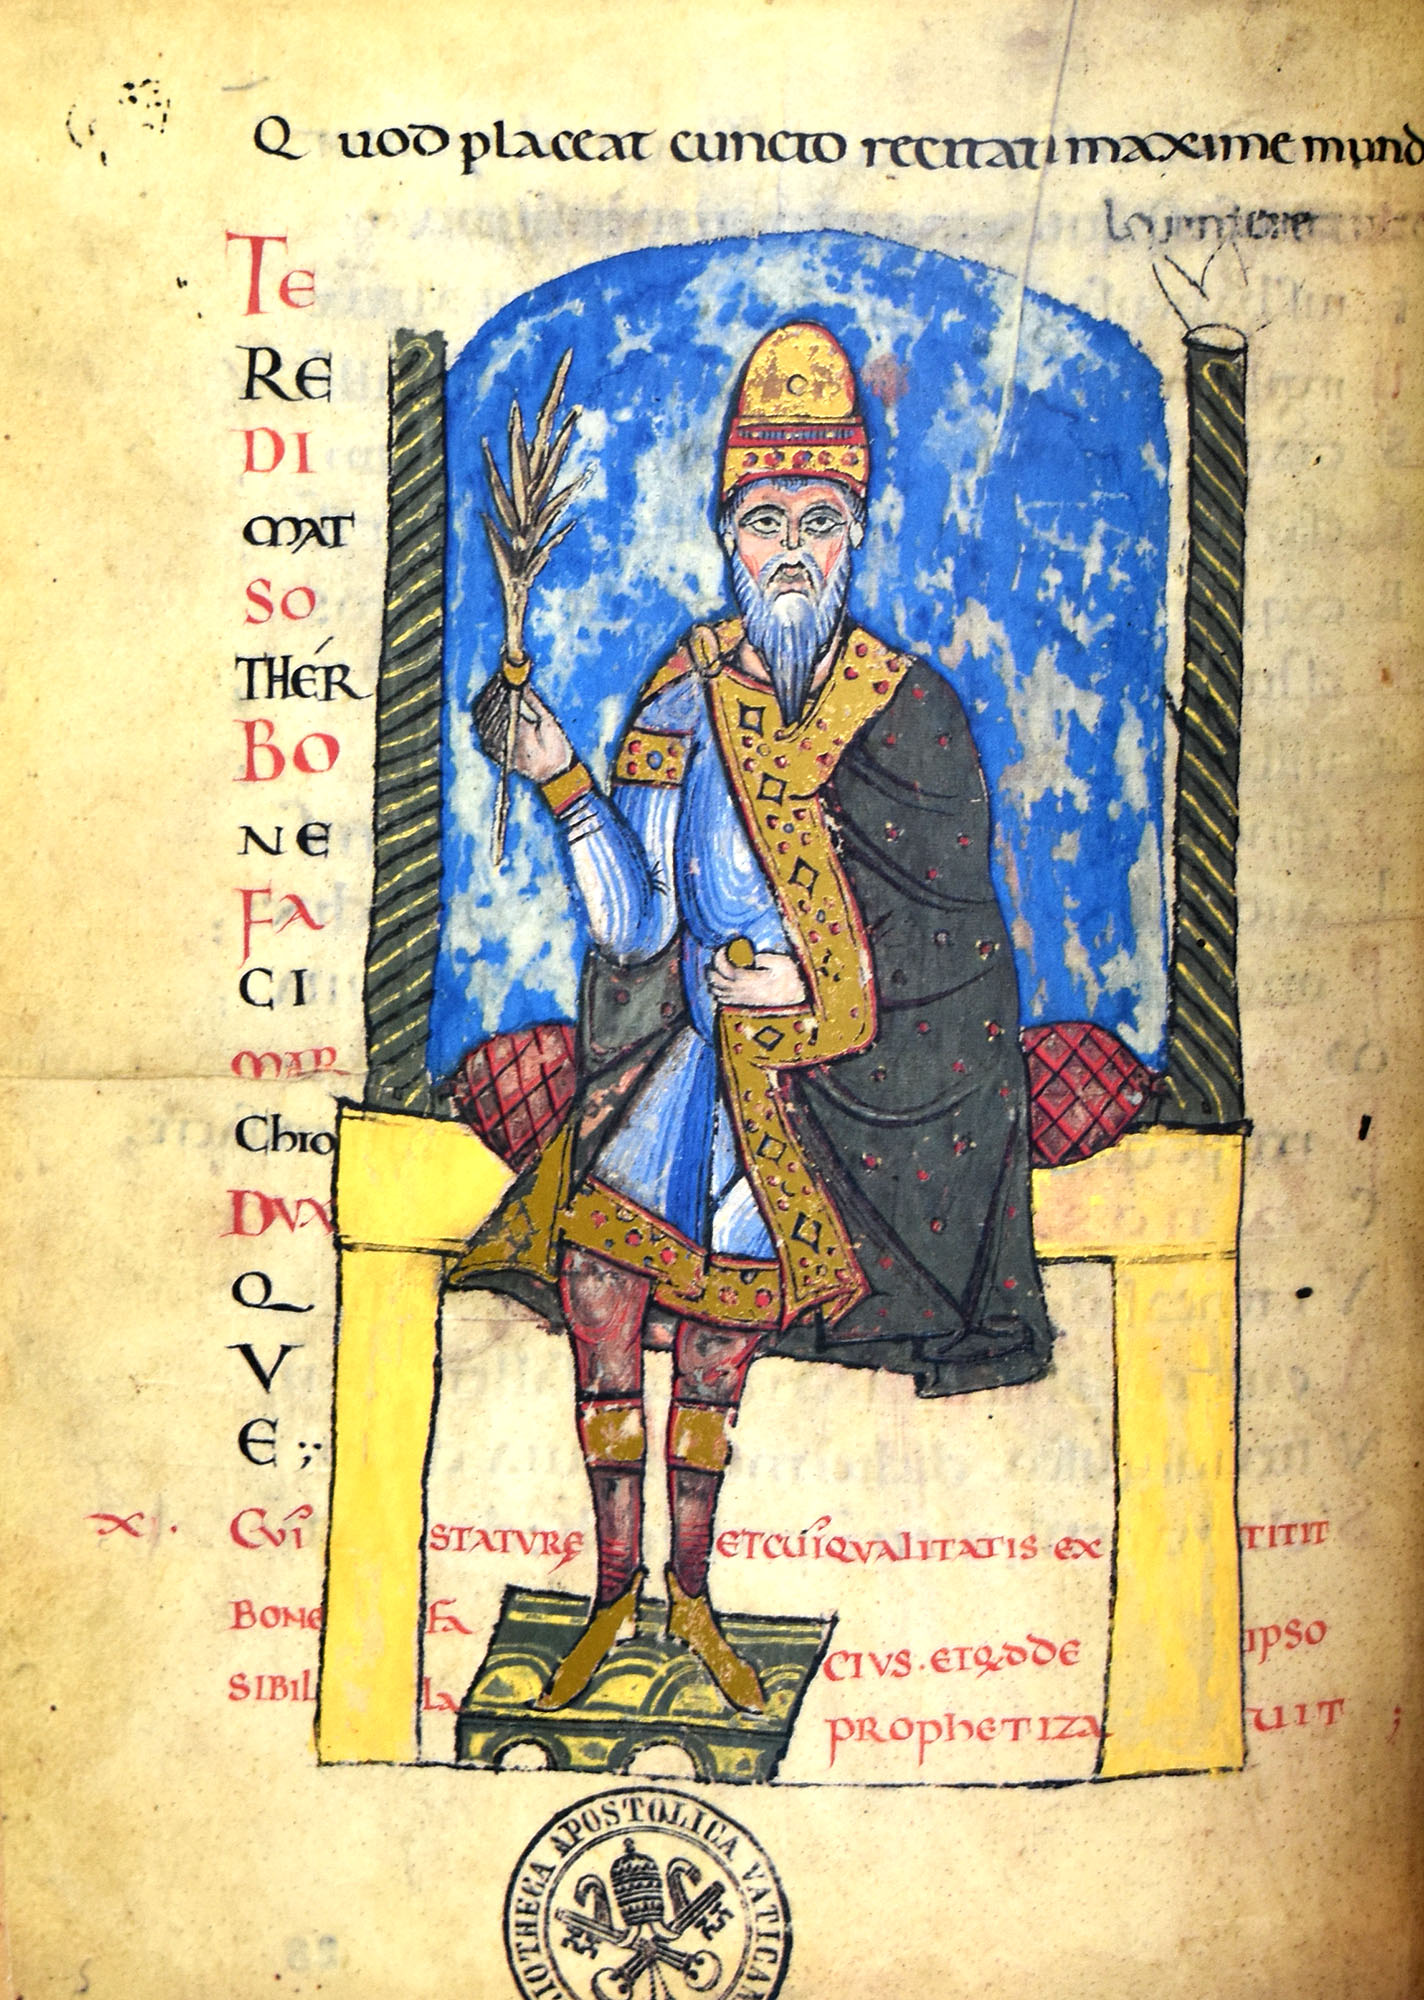 Quod placeat cuncto recitat maxime mund
TE
RE
DI
MAT
SO
THER
BO
NE
FA
CI
MAR
Chio
DUX
Q
V
E ;;
x. CVI STATVRE ET CUI QVALITATIS EX TITIT
BONE FA CIVS. ETQDDE IPSO
SIBIL LA PROPHETIZA UIT ;
BIOTHECA APOSTOLICA VATICAN